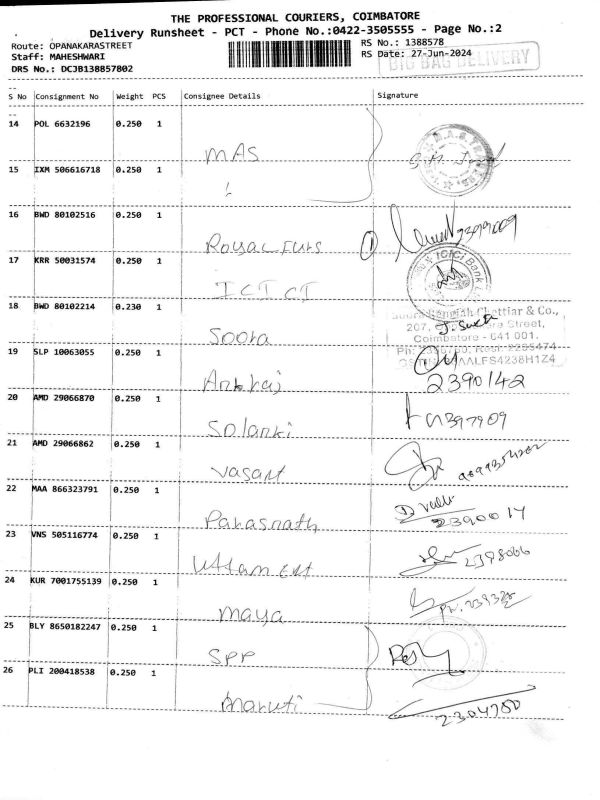 THE PROFESSIONAL COURIERS, COIMBATORE
Delivery Runsheet - PCT - Phone No.:0422-3505555 - Page No.:2
Route: OPANAKARASTREET
RS No.: 1388578
Staff: MAHESHWARI
RS Date: 27-Jun-2024
BIG BAG DELIVERY
DRS No.: DCJB138B57802
S No Consignment No Weight PCS Consignee Details Signature
14 POL 6632196 0.250 1 MAS
15 IXM 506616718 0.250 1
16 BWD 80102516 0.250 1 Royal Eurs 1
17 KRR 50031574 0.250 1 ICICI
ICICI Bank
18 BWD 80102214 0.230 1 Soora
Chettiar & Co.,
207, Street,
Coimbatore - 641 001.
19 SLP 10063055 0.250 1 Ankraj
2390142
20 AMD 29066870 0.250 1 Solanki
21 AMD 29066862 0.250 1 Vasant
22 MAA 866323791 0.250 1 Parasnath
2390014
23 VNS 505116774 0.250 1 Uttam Ent
2398066
24 KUR 7001755139 0.250 1 Maya
25 BLY 8650182247 0.250 1 SPP
26 PLI 200418538 0.250 1 Maruti
2304780